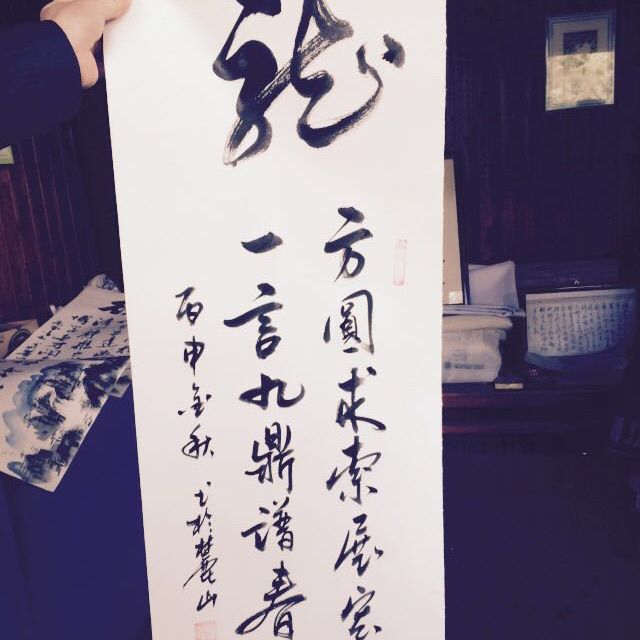 龍
方圓求索展宏
一言九鼎譜春
丙申金秋书於麓山